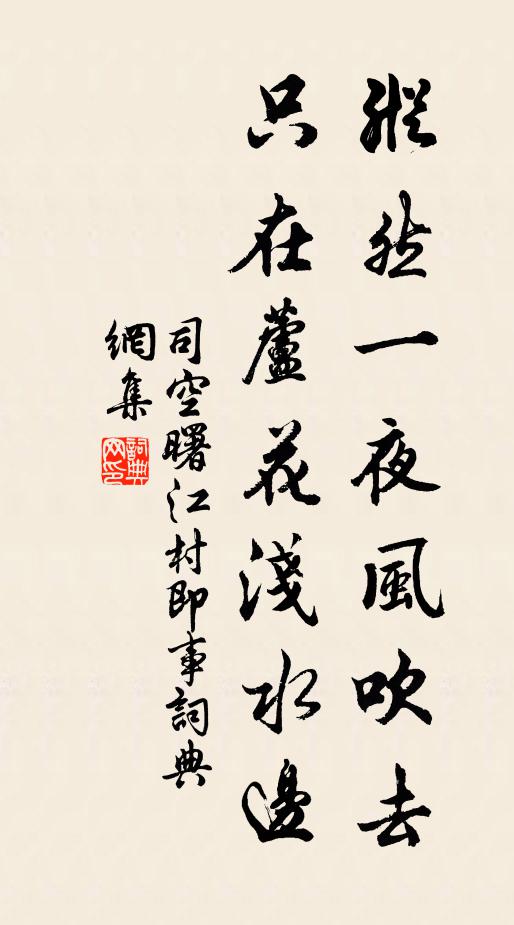 縱然一夜風吹去
只在蘆花淺水邊
司空曙江村即事詞典
網集
詞典網印